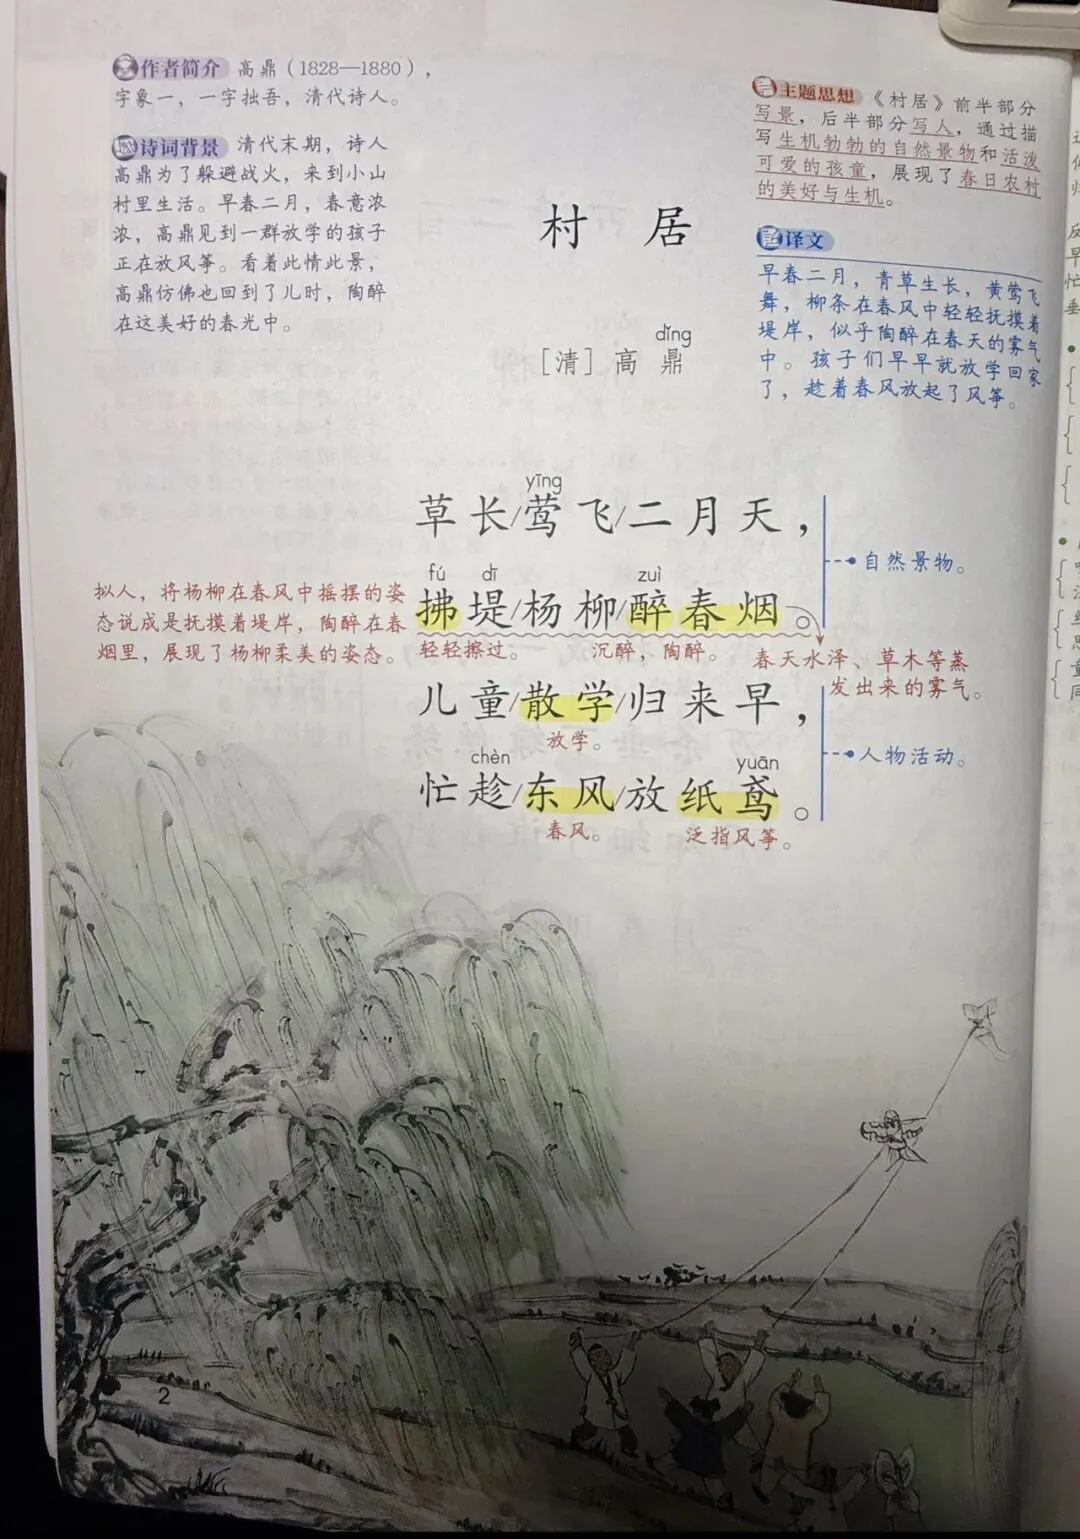 作者简介 高鼎（1828—1880），
字象一，一字拙吾，清代诗人。
诗词背景 清代末期，诗人
高鼎为了躲避战火，来到小山
村里生活。早春二月，春意浓
浓，高鼎见到一群放学的孩子
正在放风筝。看着此情此景，
高鼎仿佛也回到了儿时，陶醉
在这美好的春光中。
主题思想 《村居》前半部分
写景，后半部分写人，通过描
写生机勃勃的自然景物和活泼
可爱的孩童，展现了春日农村
的美好与生机。
译文
早春二月，青草生长，黄莺飞
舞，柳条在春风中轻轻抚摸着
堤岸，似乎陶醉在春天的雾气
中。孩子们早早就放学回家
了，趁着春风放起了风筝。
村 居
dǐng
［清］高 鼎
yīng
草长/莺飞/二月天，
自然景物。
fú dī zuì
拂堤/杨柳/醉春烟。
轻轻擦过。 沉醉，陶醉。
春天水泽、草木等蒸
发出来的雾气。
拟人，将杨柳在春风中摇摆的姿
态说成是抚摸着堤岸，陶醉在春
烟里，展现了杨柳柔美的姿态。
儿童/散学/归来早，
放学。
人物活动。
chèn yuān
忙趁/东风/放纸鸢。
春风。 泛指风筝。
2